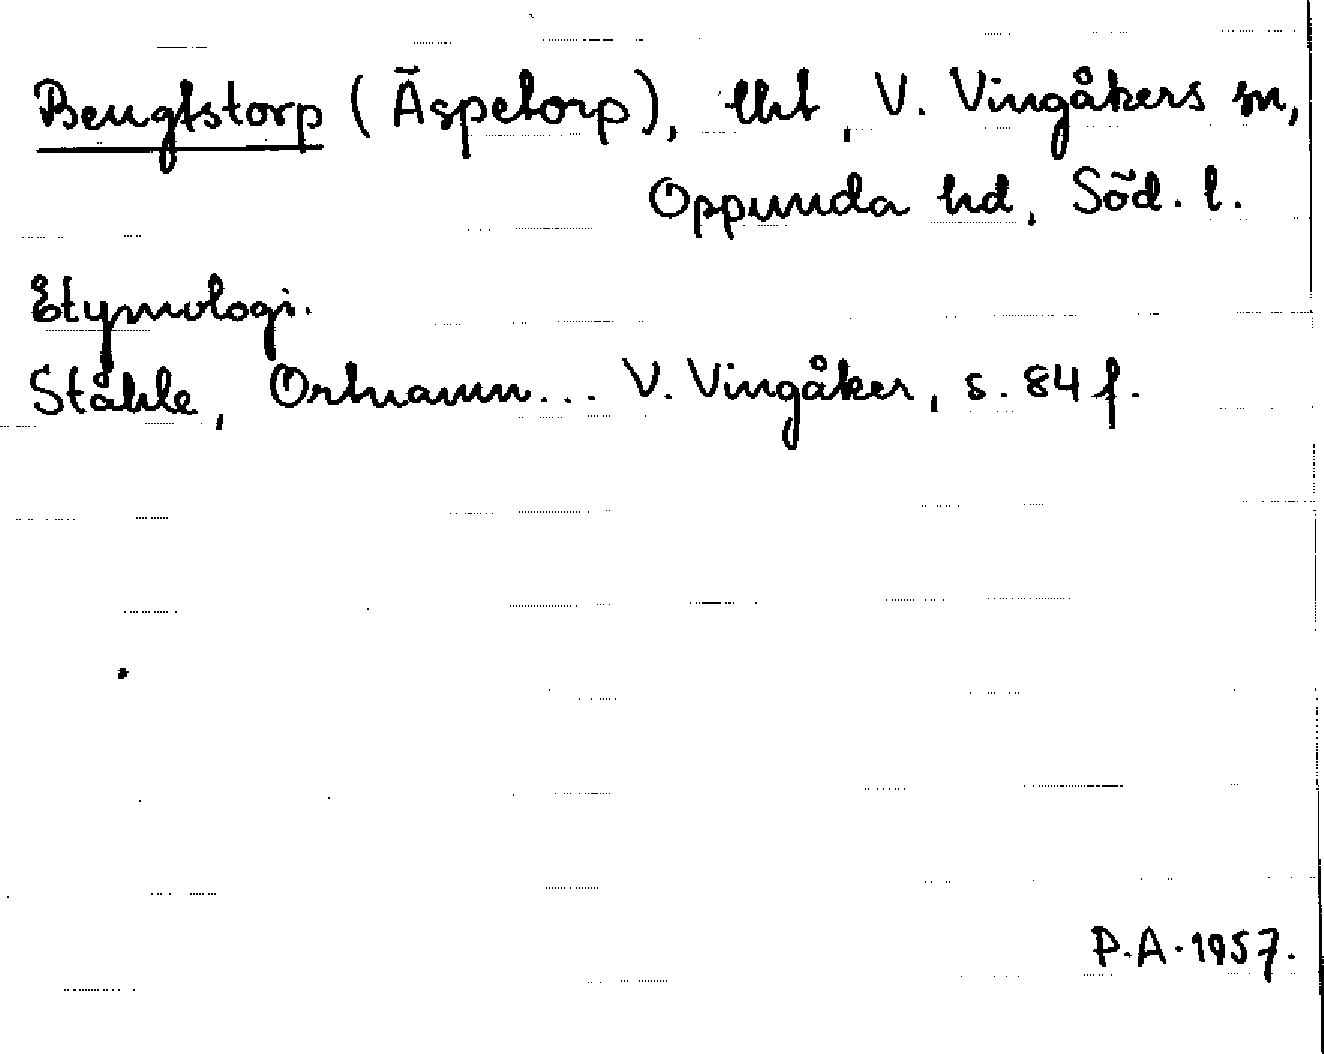 Bengtstorp (Äspetorp), lht, V. Vingåkers sn,
Oppunda hd, Söd. l.
Etymologi.
Ståhle, Ortnamn... V. Vingåker, s. 84 f.
P.A. 1957.